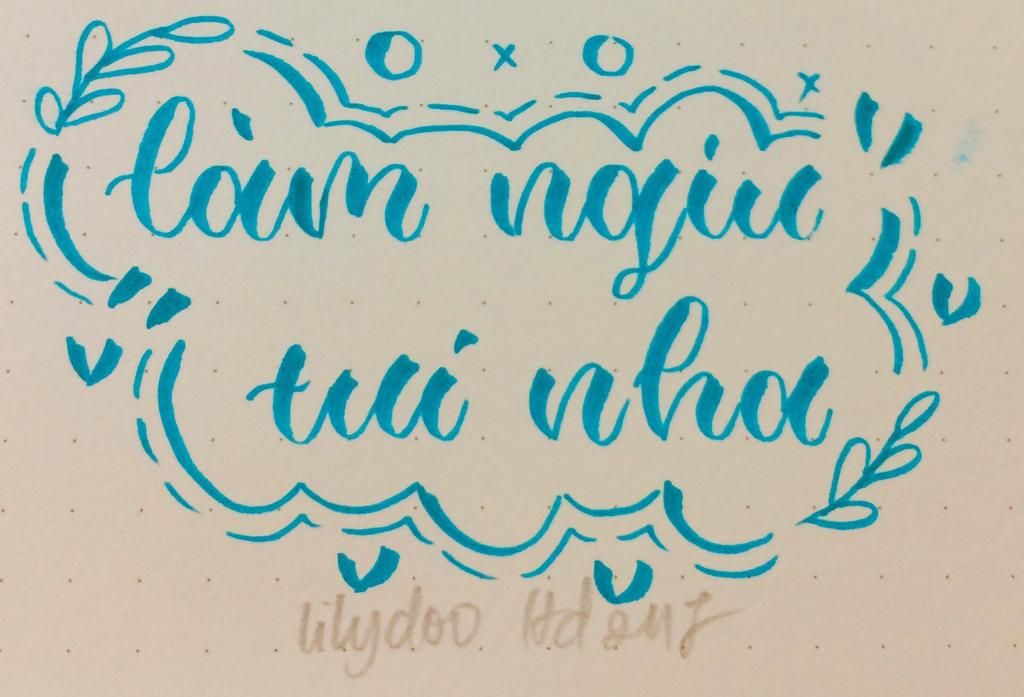 làm ngiu
tui nha
lilydoo